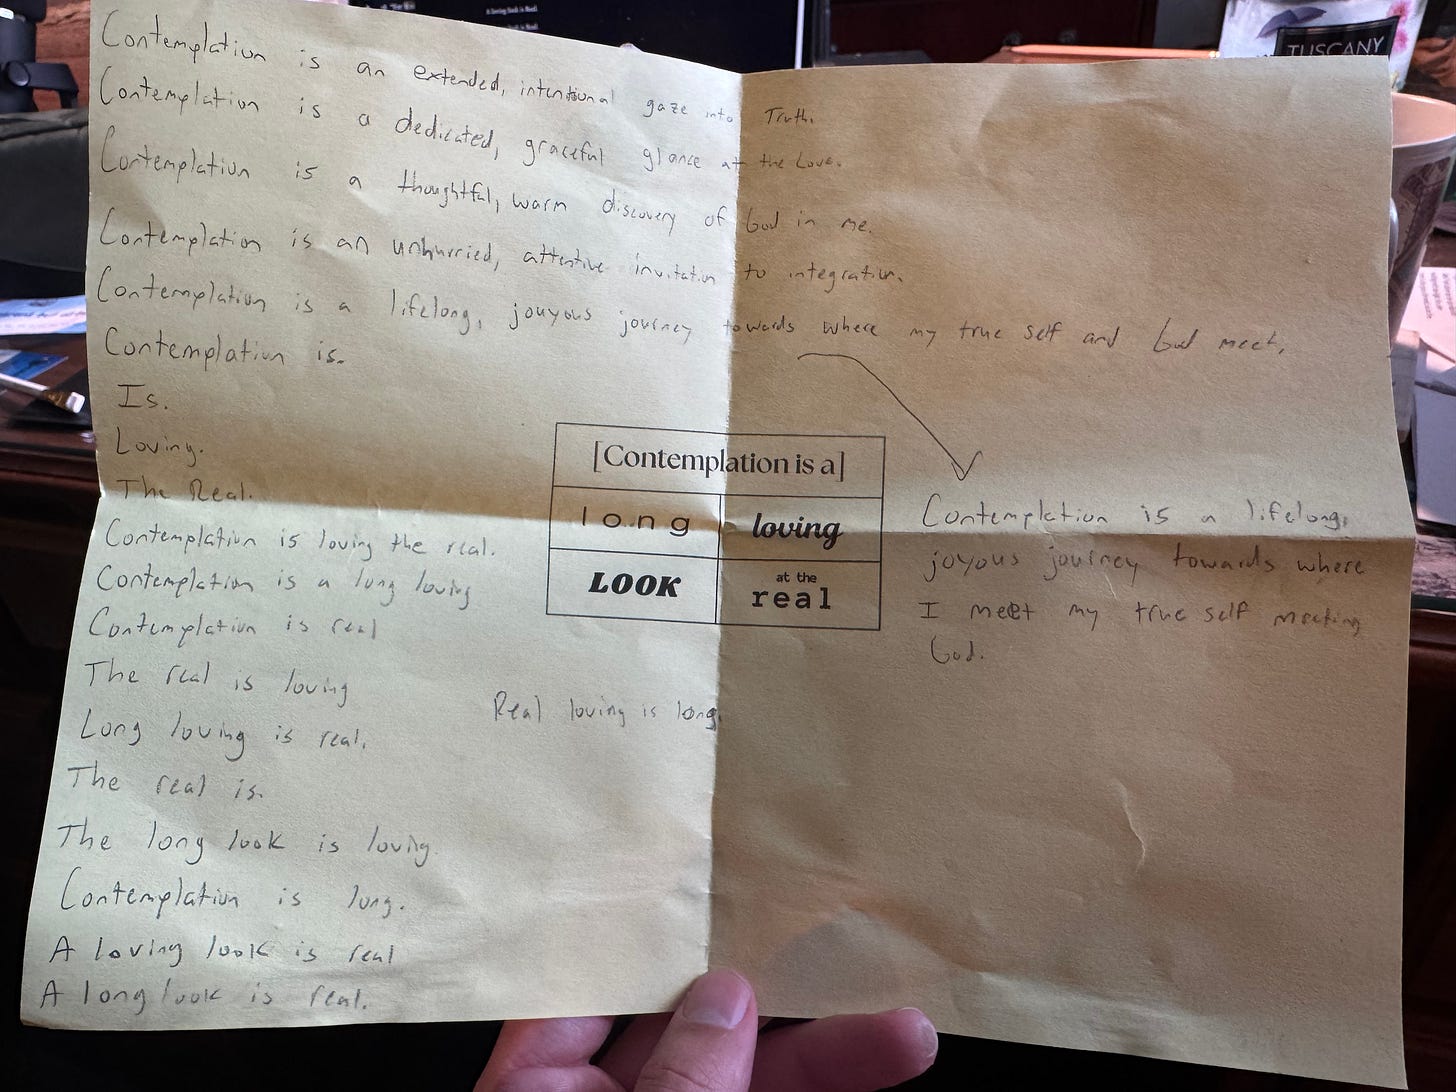 Contemplation is an extended, intentional gaze into Truth.
Contemplation is a dedicated, graceful glance at the Love.
Contemplation is a thoughtful, warm discovery of God in me.
Contemplation is an unhurried, attentive invitation to integration.
Contemplation is a lifelong, jouyous journey towards where my true self and God meet.
Contemplation is.
Is.
Loving.
The Real.
Contemplation is loving the real.
Contemplation is a long loving
Contemplation is real
The real is loving
Long loving is real.
The real is.
The long look is loving
Contemplation is long.
A loving look is real
A long look is real.
Real loving is long.
[Contemplation is a]
long loving
LOOK at the real
Contemplation is a lifelong,
joyous journey towards where
I meet my true self meeting
God.
TUSCANY